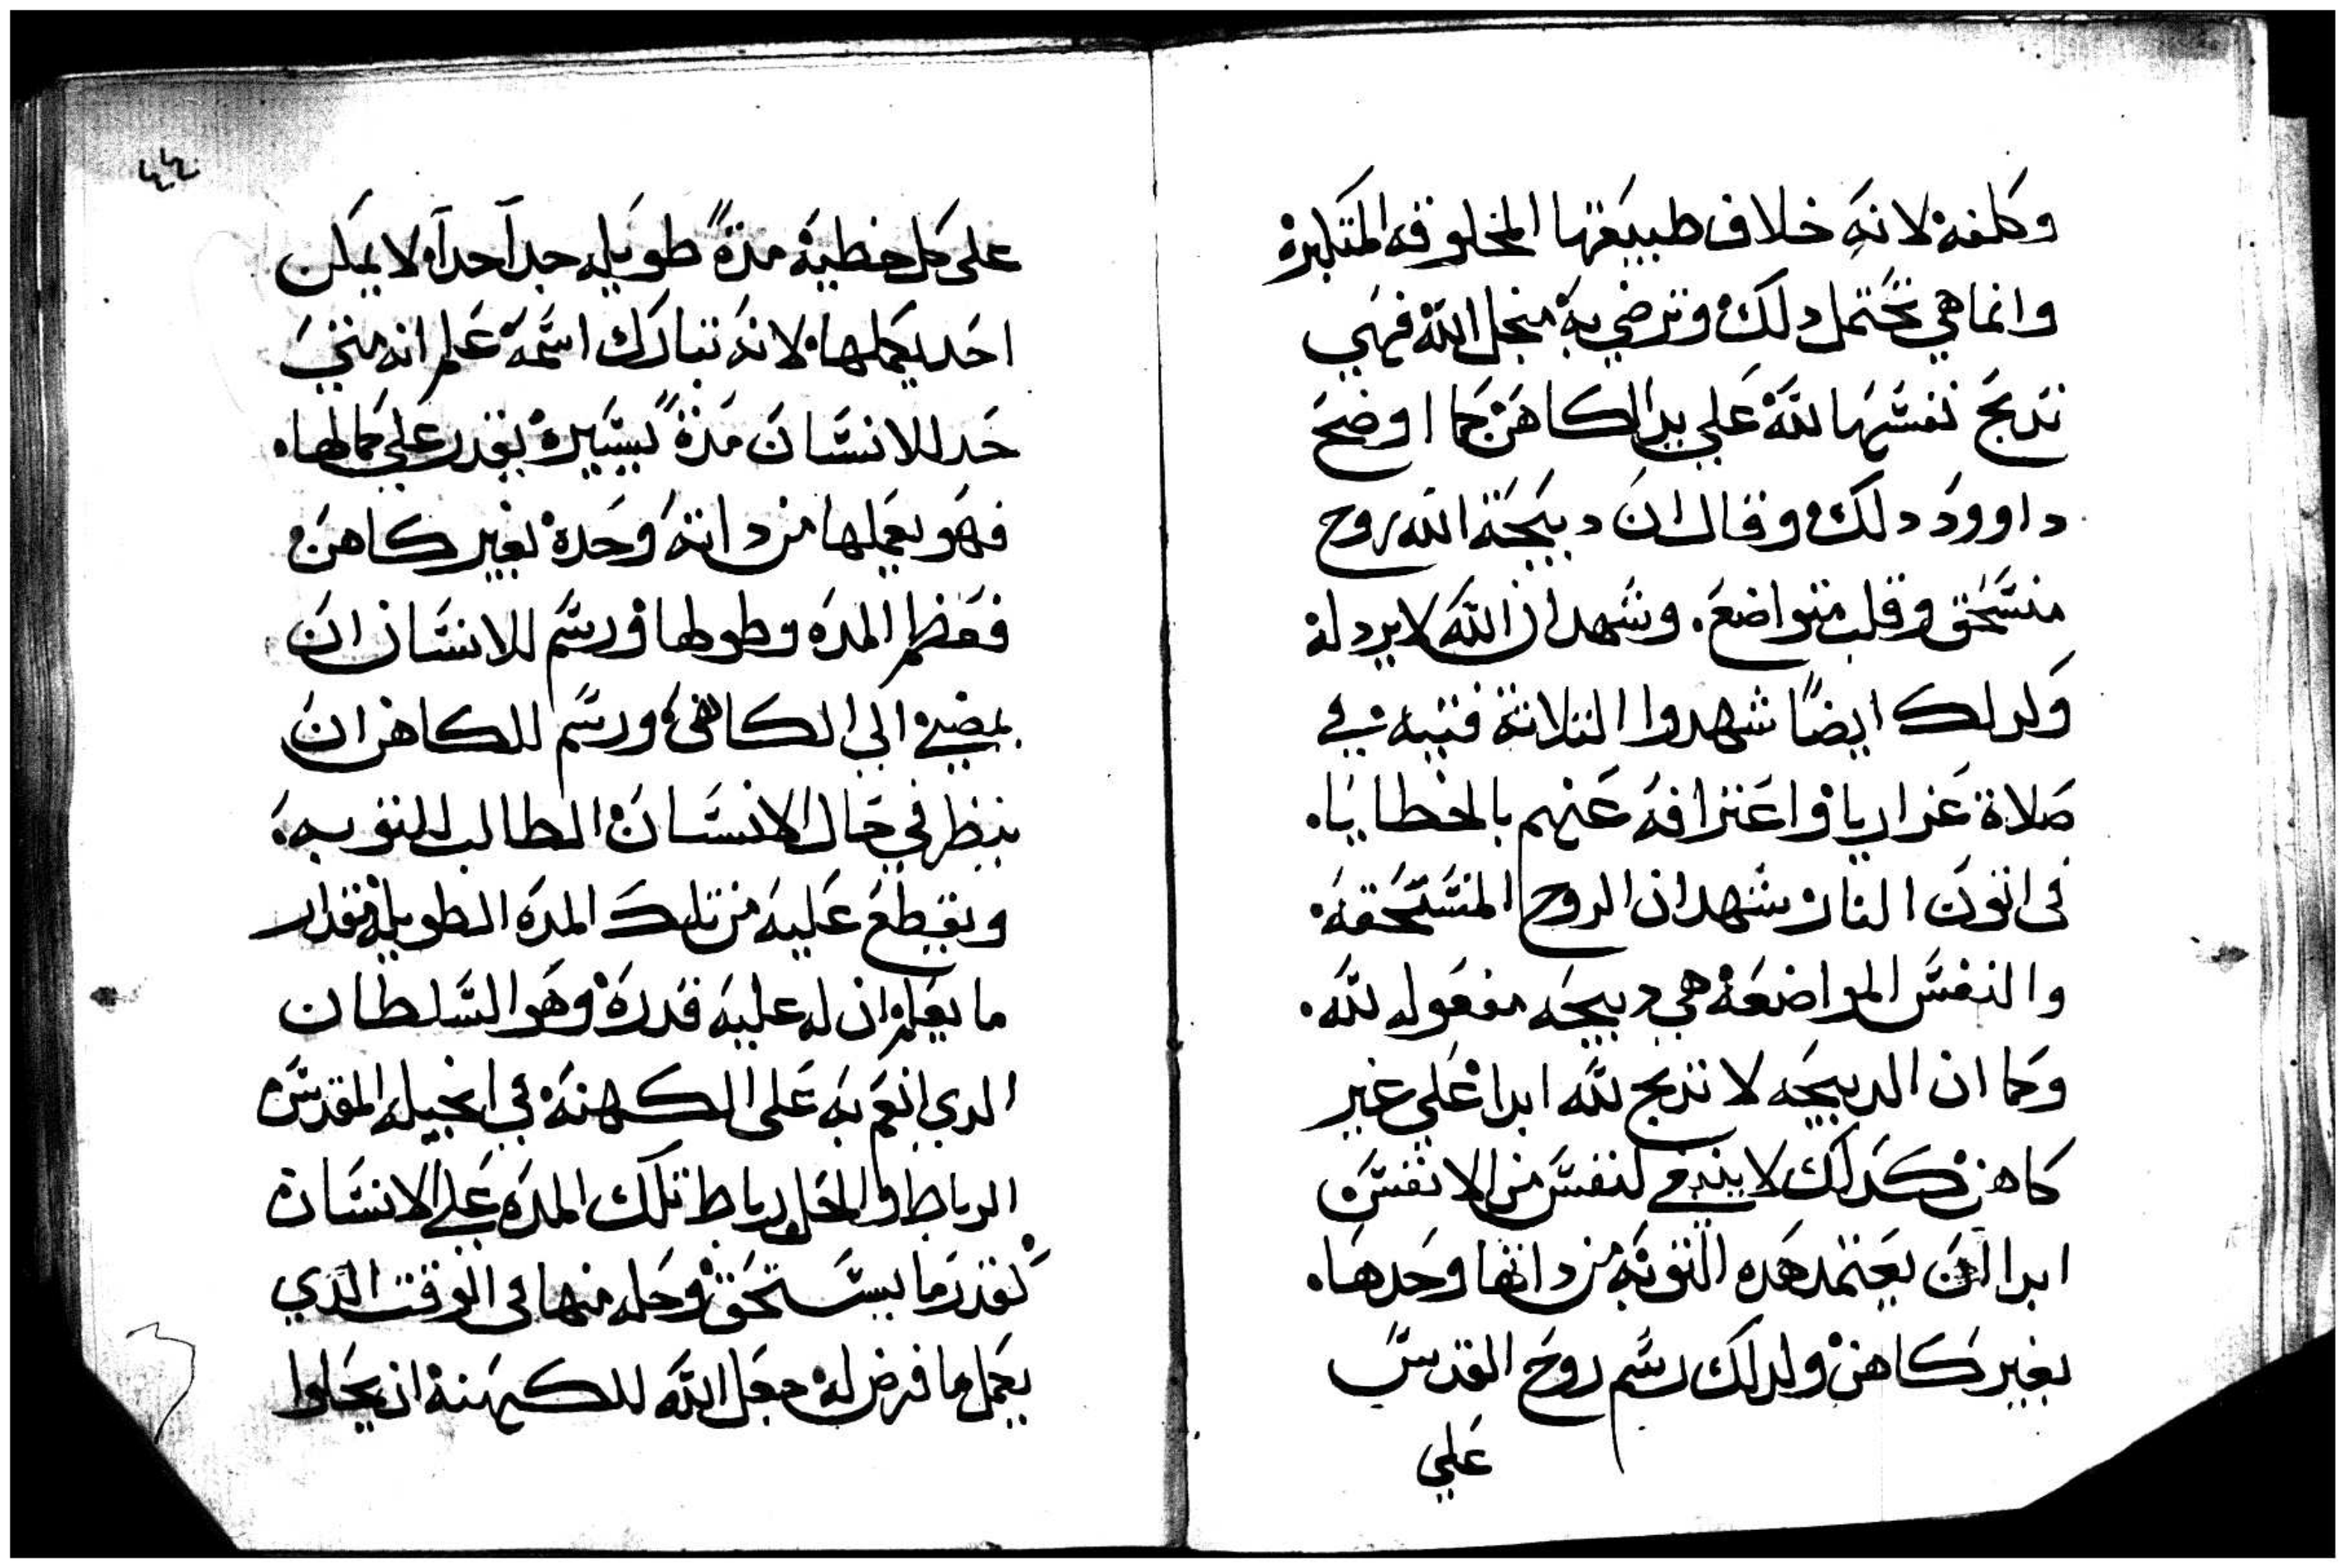 وكلفة لانه خلاف طبيعتها المخلوقه المتكبرة
وانما هي تحتمل دلك وترضي به منجل الله فهي
تدبح نفسها لله علي يد الكاهن كما اوضح
داوود دلك وقال ان دبيحة الله روح
منسحق وقلب متواضع. وشهد ان الله لا يردله
ولدلك ايضاً شهدوا التلاتة فتيه في
صلاة عزاريا واعترافه عنهم بالخطايا.
في اتون النار شهد ان الروح المنسحقه.
والنفس المواضعة هي دبيحه مفعوله لله.
وكما ان الدبيحه لا تدبح لله ابدا علي غير
كاهن كدلك لا ينبغي لنفس من الانفس
ابدا ان يعتمد هده التوبه من داتها وحدها.
بغير كاهن ولدلك رسم روح القدس
علي
٤٤
على كل خطية مدةً طويله جداً جداً لا يمكن
احد يكملها لانه تبارك اسمه علم انه متي
حد للانسان مدةً يسيرة يقدر علي كمالها.
فهو يعملها من داته وحده بغير كاهن
فعظم المده وطولها ورسم للانسان ان
يمضي الي الكاهن ورسم للكاهن ان
ينظر في حال الانسان الطالب للتوبه.
ويقطع عليه من تلك المده الطويله مقدار
ما يعلم ان له عليه قدرة وهو السلطان
الدي انعم به على الكهنة في انجيله المقدس
الرباط والحل رباط تلك المده علي الانسان
بقدر ما يستحق وحله منها في الوقت الدي
يعمل ما فرض له جعل الله للكهنة ان يحلوا